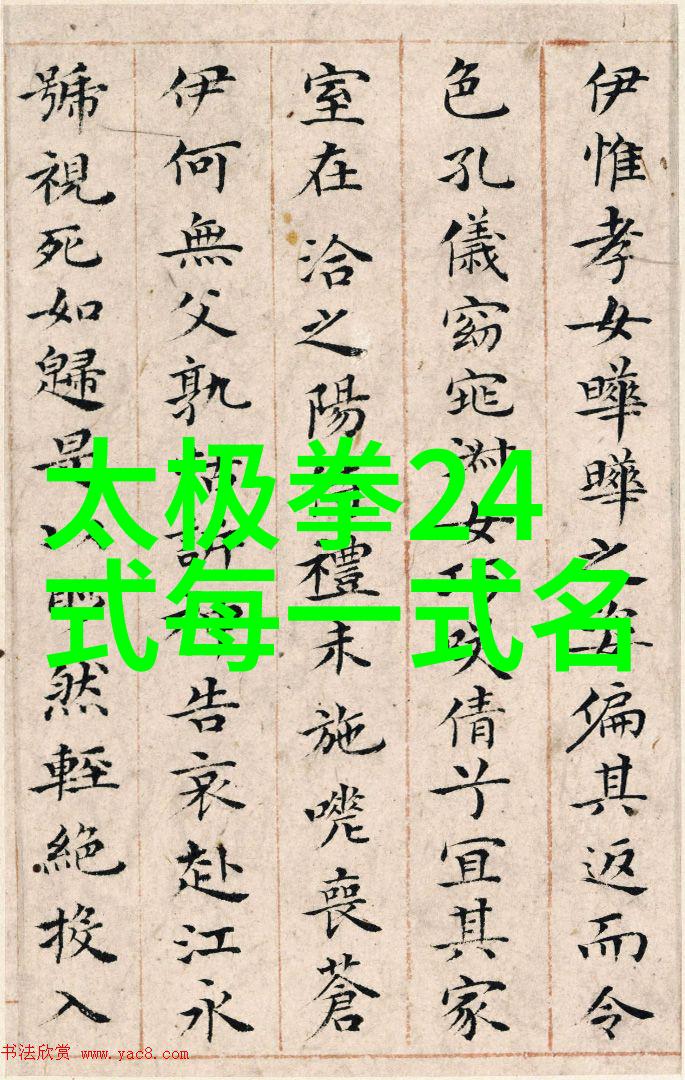 伊惟孝女曄曄之姿偏其返而令
色孔儀窈窕淑女巧咲倩兮宜其家
室在洽之陽禮未施嗟喪蒼
伊何無父孰怙訴神告哀赴江永
號視死如歸是以眇然輕絕投入
太极拳24
式每一式名
书法欣赏 www.yac8.com